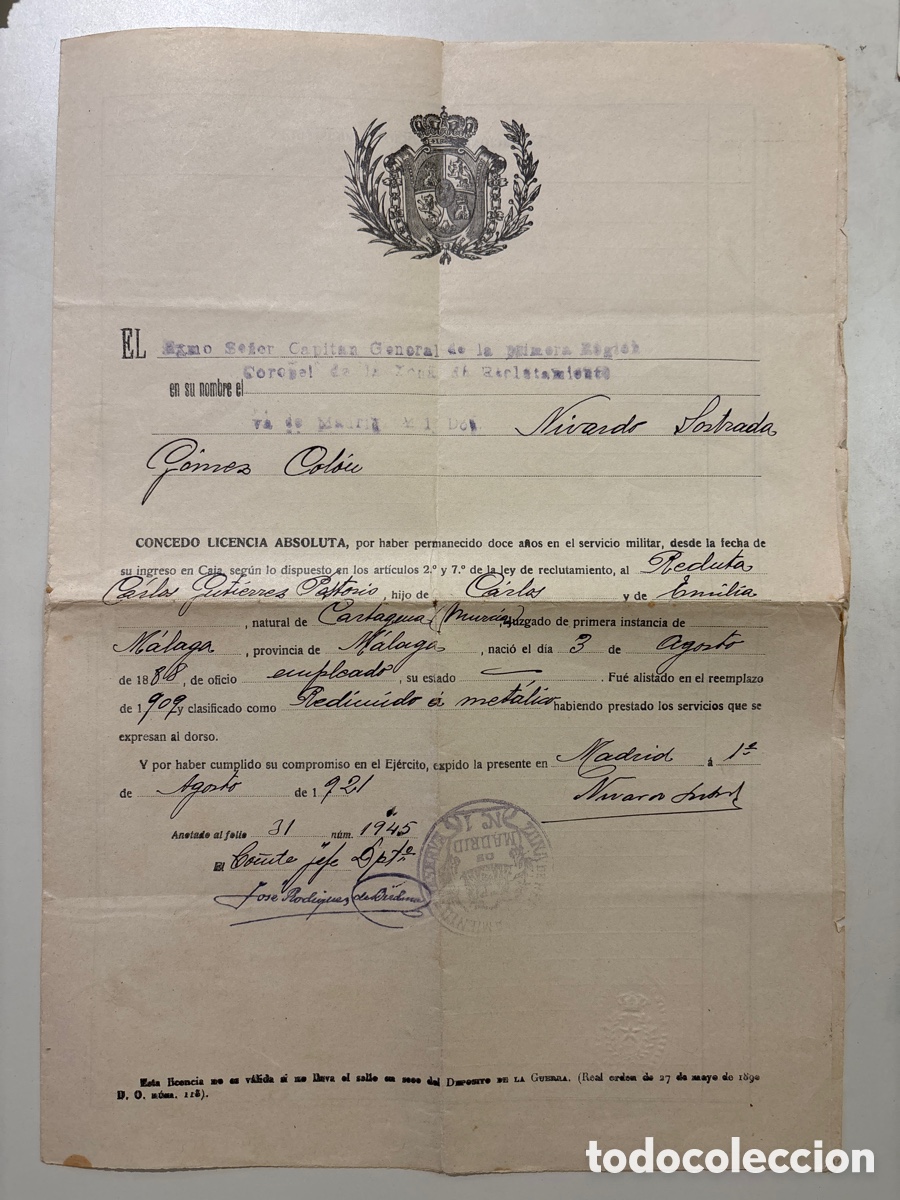 EL Exmo Señor Capitan General de la primera Región
en su nombre el Coronel de la Zona de Reclutamiento
de Madrid Nivardo Sostrada
Gómez Colón
CONCEDO LICENCIA ABSOLUTA, por haber permanecido doce años en el servicio militar, desde la fecha de
su ingreso en Caja, según lo dispuesto en los artículos 2.º y 7.º de la ley de reclutamiento, al Recluta
Cárlos Gutiérrez Pastorio, hijo de Cárlos y de Emilia
, natural de Cartagena (Murcia), Juzgado de primera instancia de
Málaga, provincia de Málaga, nació el día 3 de Agosto
de 1888, de oficio empleado, su estado — . Fué alistado en el reemplazo
de 1909 y clasificado como Redimido á metálico habiendo prestado los servicios que se
expresan al dorso.
Y por haber cumplido su compromiso en el Ejército, expido la presente en Madrid á 1º
de Agosto de 1921
Anotado al folio 31 núm. 1945
El Comte Jefe
José Rodriguez de
ZONA DE RESERVA
MADRID
Nº 1
Esta licencia no es válida si no lleva el sello en seco del DEPÓSITO DE LA GUERRA. (Real orden de 27 de mayo de 1890
D. O. núm. 118).
todocoleccion